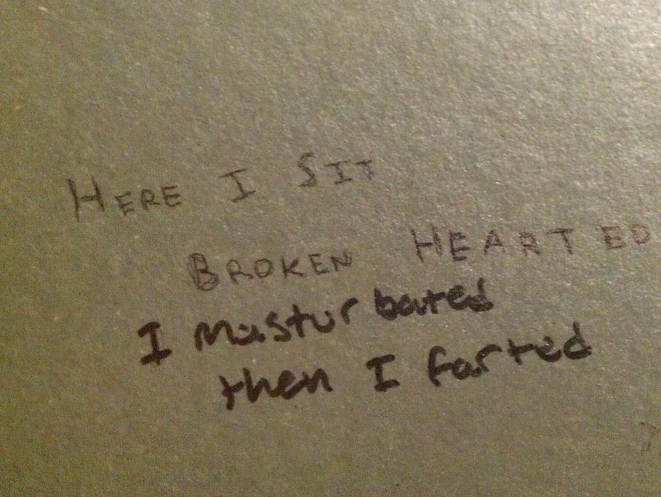 HERE I SIT
BROKEN HEARTED
I masturbated
then I farted